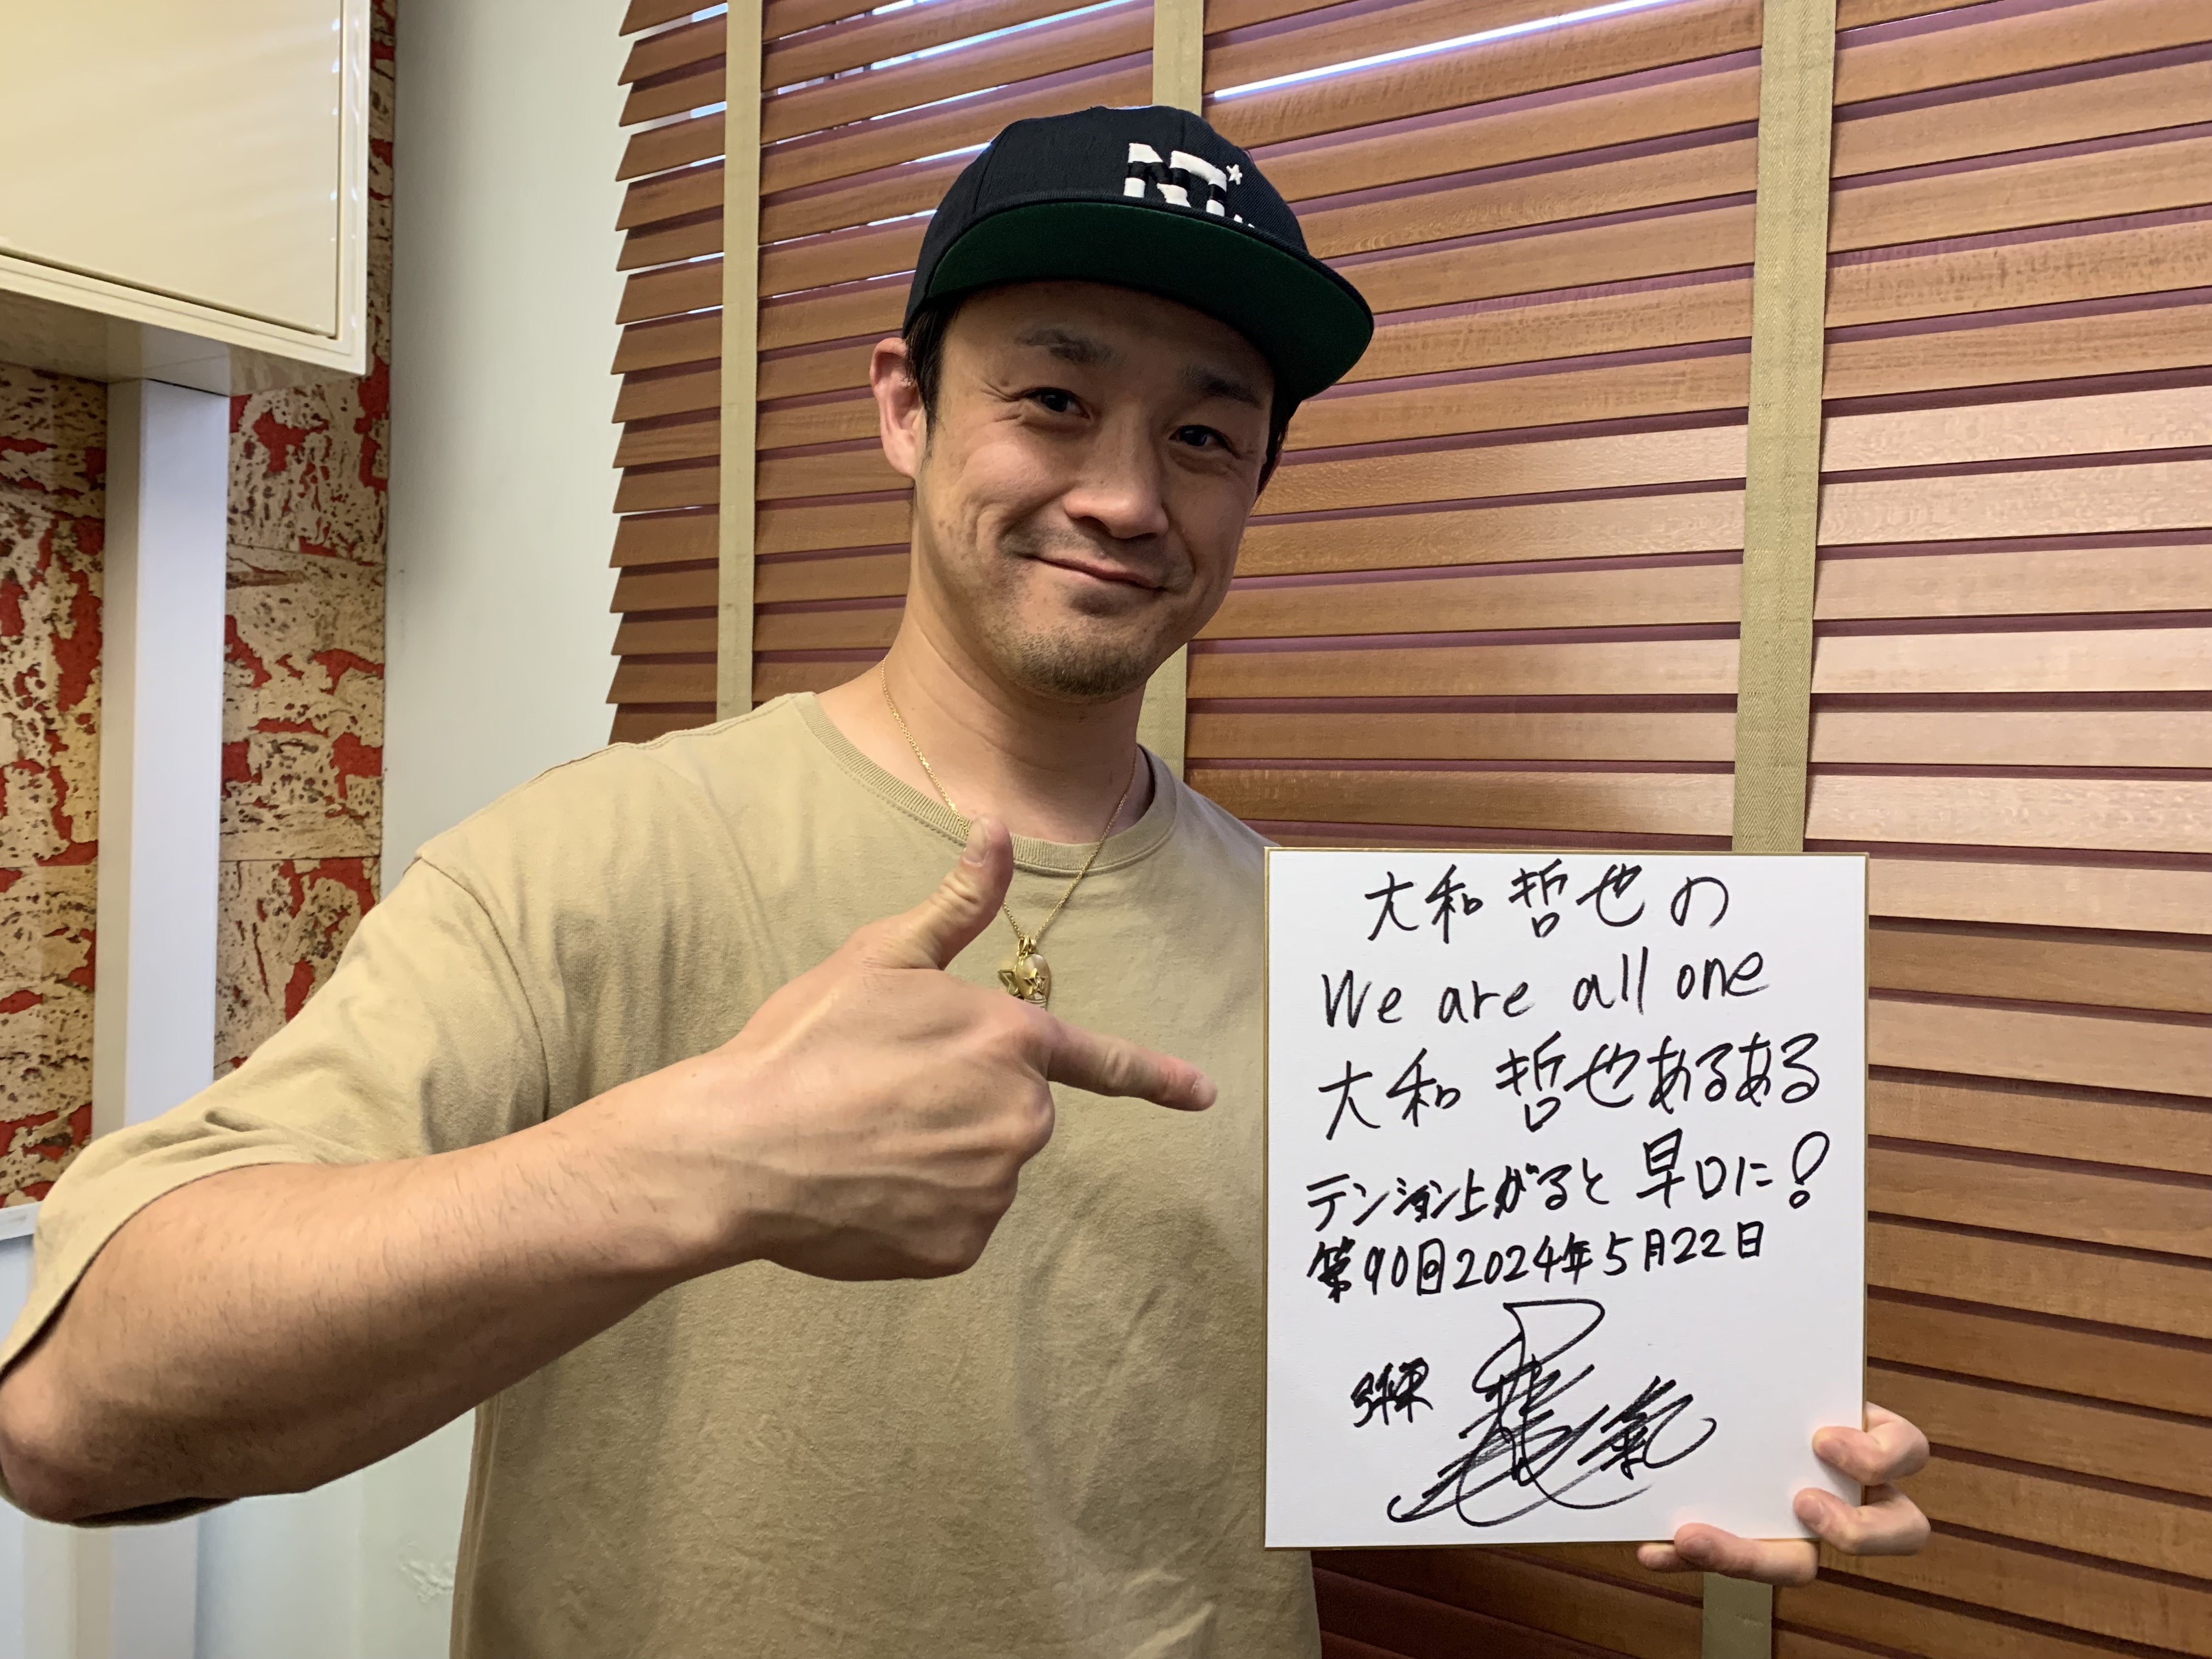 NT
大和 哲也の
We are all one
大和 哲也あるある
テンション上がると早口に!
第90回2024年5月22日